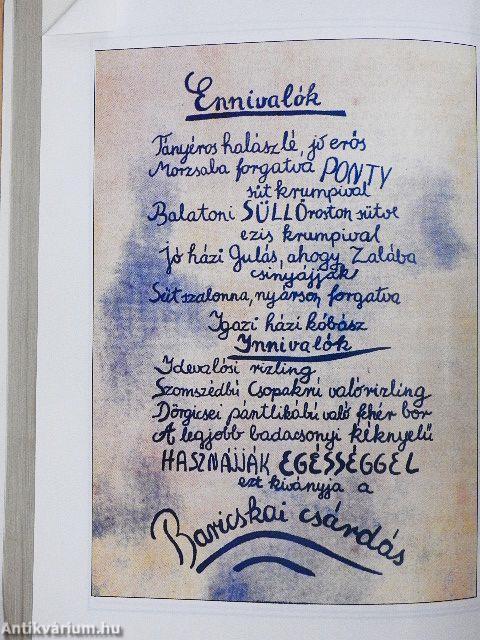 Ennivalók
Tányéros halászlé, jó erős
Morzsaba forgatva PONTY
süt krumpival
Balatoni SÜLLŐ roston sütve
ezis krumpival
Jó házi Gulás, ahogy Zalába
csinyájják
Süt szalonna, nyárson forgatva
Igazi házi kóbász
Innivalók
Idevalósi rizling
Szomszédbú Csopakrú valórizling
Dörgicsei pántlikábú való fehér bor
A legjobb badacsonyi kéknyelű
HASZNÁJJÁK EGÉSSÉGGEL
ezt kiványja a
Baricskai csárdás
Antikvárium.hu